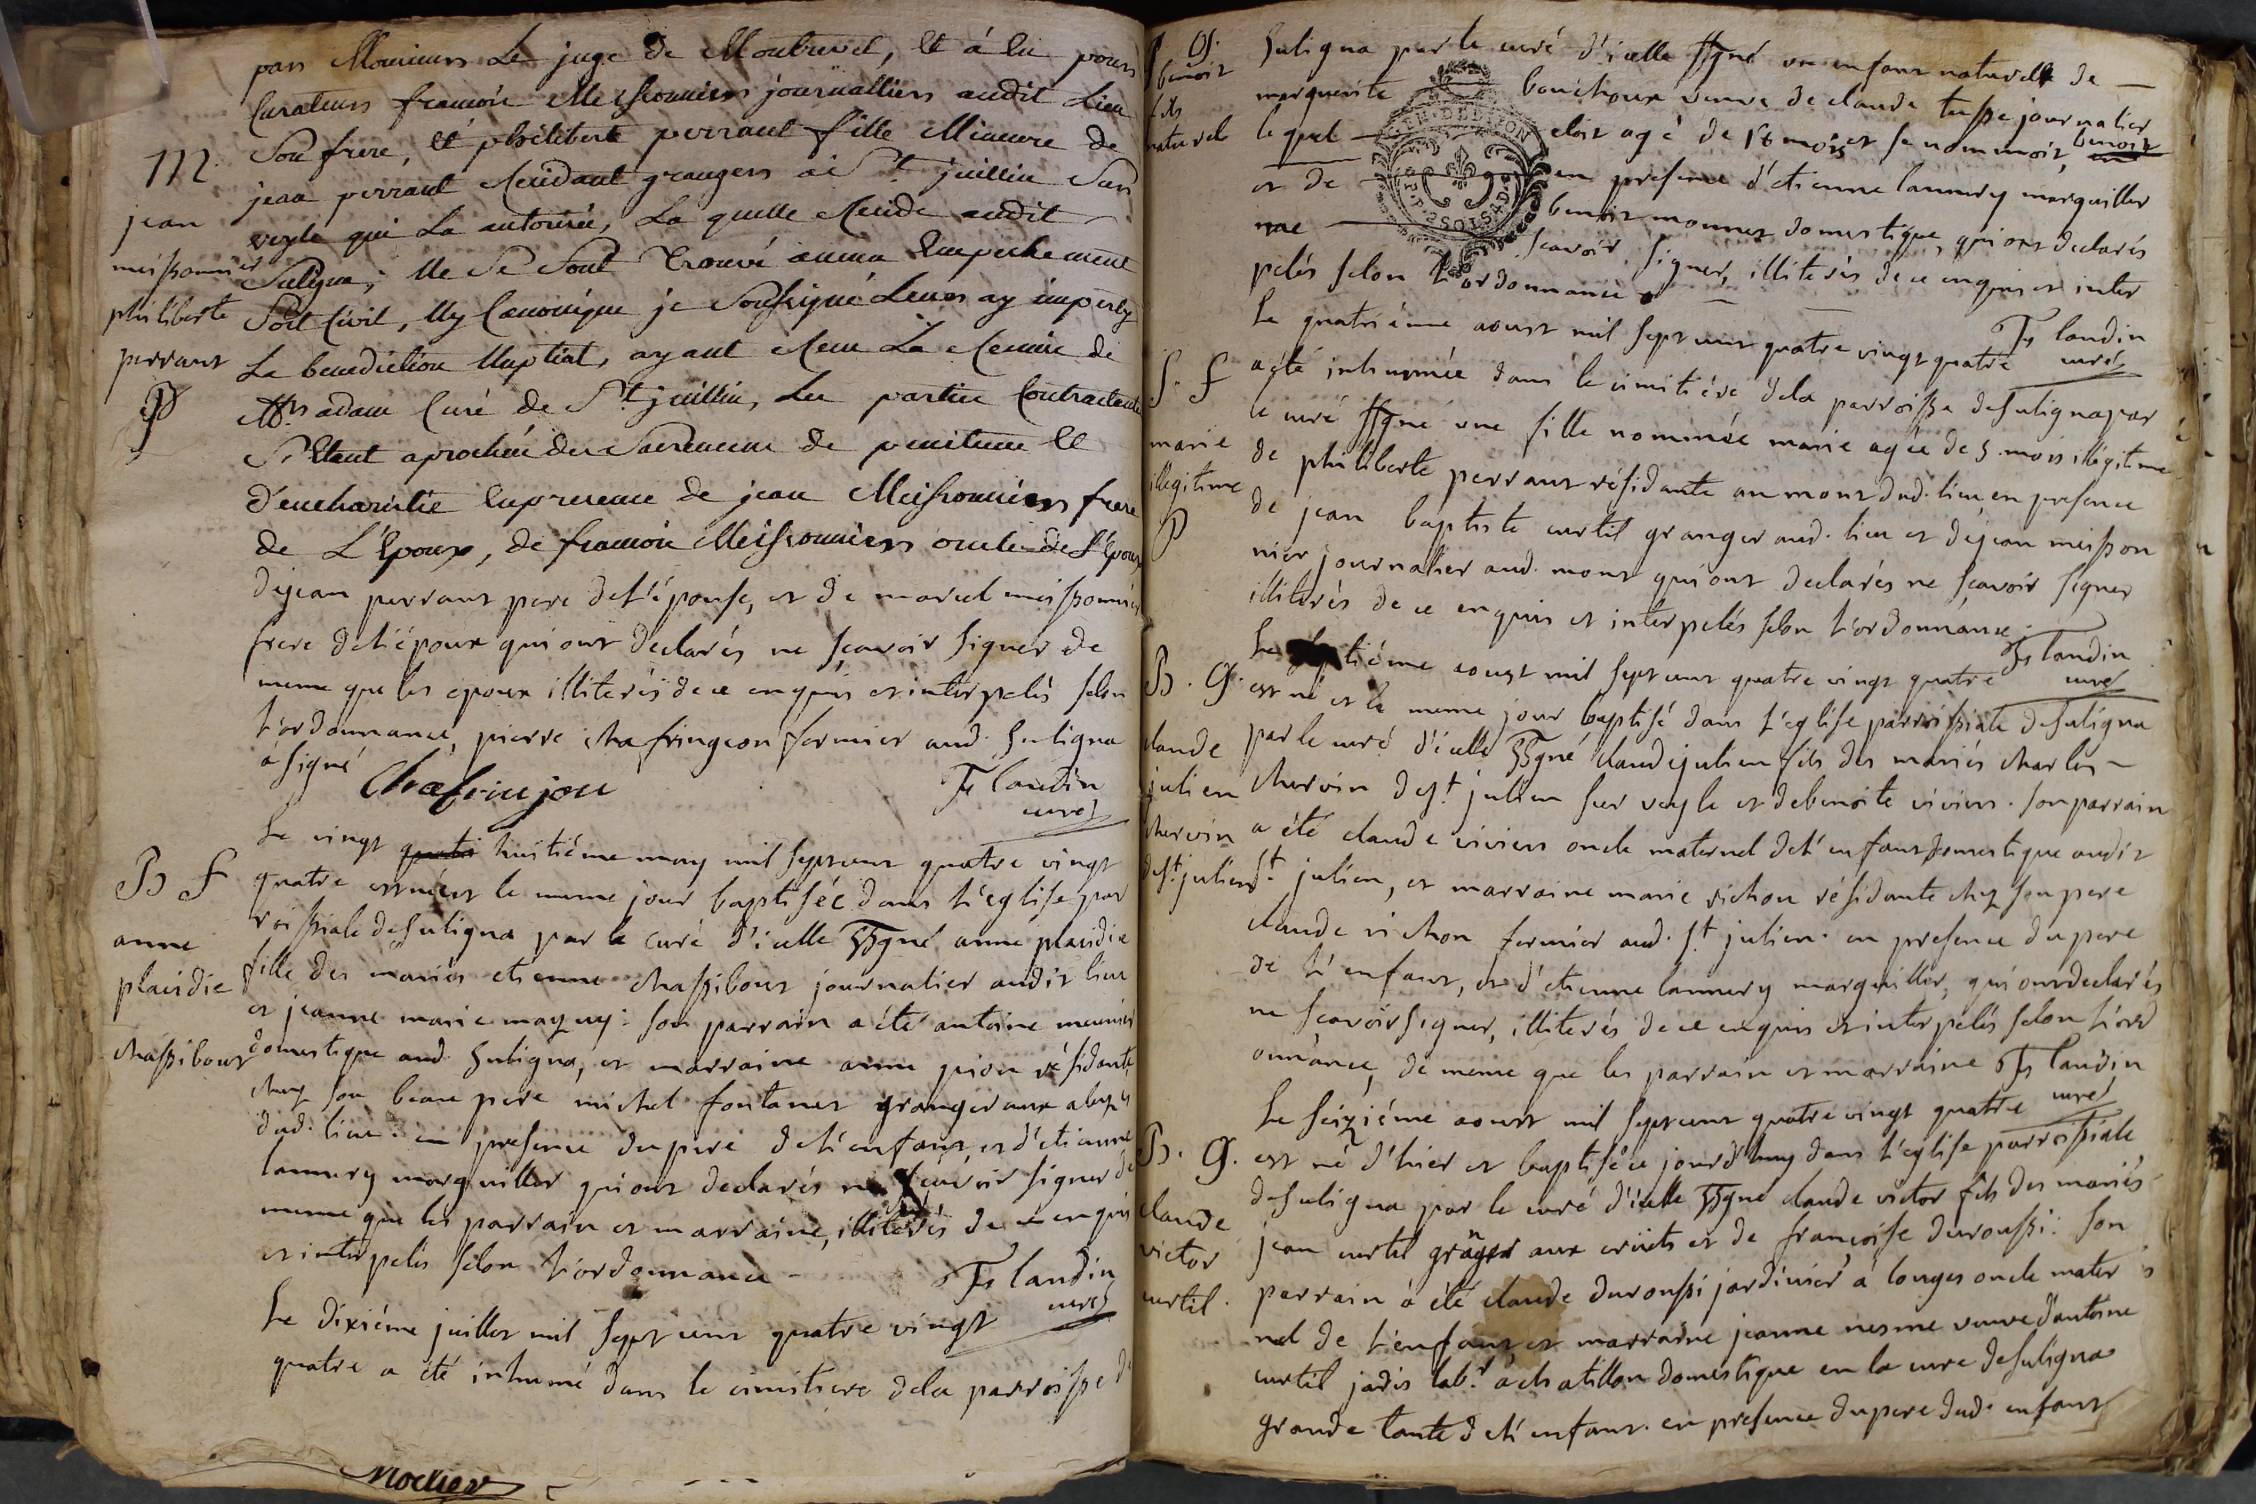 par Monsieurs Le juge de Montrevel, et à lui pour
Curateurs francois Meissonniers journalliers audit Lieu
Son frere, et philiberte perraut fille Mineure de
M
jean perraut Residant grangers à St juillin Sur
jean
veyle qui La autorisée, La quelle Reside audit
meissonnier
Suligna; Ne Se Sont Trouvé aucun Empechement
philiberte
Soit Civil, Ny Canonique je Soussigné Leurs ay imparty
perraut
La benediction Nuptial, ayant Receu La Remise de
P
Mr adam Curé de St juillin, Les parties Contractantes
S'Etant aprochées des Sacrements de penitence Et
d'eucharistie En presence de jean Meissonniers frere
de L'Epoux, de francois Meissonniers oncle de L'Epoux
de jean perraut pere de l'épouse, et de marcel meissonnier
frere de l'époux qui ont declarés ne sçavoir signer de
meme que les epoux illiterés de ce enquis et interpelés selon
l'ordonnance, pierre chafringeon fermier aud. Suligna
a signé Chafrinjon
Fs landin
curé
Le vingt quatr huitiéme may mil sept cent quatre vingt
B f
quatre est née et le meme jour baptisée dans l'eglise par
roissiale de Suligna par le curé d'icelle ssgné anne placidie
anne
placidie
fille des mariés etienne chassibout journalier audit lieu
et jeanne marie mazuy: son parrain a été antoine meunier
chassibout
domestique aud. Suligna, et marraine anne pion résidante
chez son beau pere michel fontanet granger aux alopes
dud. lieu. en presence du pere de l'enfant, et d'etienne
lannery marguiller qui ont declarés ne sçavoir signer de
meme que les parrain et marraine, illiterés de ce enquis
et interpelés selon l'ordonnance
Fs landin
curé
Le dixiéme juillet mil sept cent quatre vingt
quatre a été inhumé dans le cimitiere de la parroisse de
Nocher
S. G.
benoit
fils
naturel
Suligna par le curé d'icelle ssgné un enfant naturelle de
marguerite bouchoux veuve de claude tusse journalier
le quel etoit agé de 18 mois et se nommoit benoit
et de en presence d'etienne lannery marguiller
benoit monnet domestique, qui ont declarés
sçavoir signer, illiterés de ce enquis et inter
pelés selon l'ordonnance
GEN. DE DIJON
Fs landin
curé
Le quatriéme aoust mil sept cent quatre vingt quatre
S. f
a été inhumée dans le cimitiére de la parroisse de Suligna par
marie
illegitime
P
le curé ssgné une fille nommée marie agée de 5 mois illégitime
de philiberte perraut résidante au mont dud. lieu, en presence
de jean baptiste curtil granger aud. lieu et de jean meisson
nier journalier aud. mont qui ont declarés ne sçavoir signer
illiterés de ce enquis et interpelés selon l'ordonnance.
Fs landin
curé
Le septiéme aoust mil sept cent quatre vingt quatre
B. G.
est né et le meme jour baptisé dans l'eglise parroissiale de Suligna
claude
julien
chervin
de St julien
par le curé d'icelle ssgné claude julien fils des mariés charles
chervin de St julien sur veyle et de benoite vivien. son parrain
a été claude vivien oncle maternel de l'enfant domestique audit
St julien, et marraine marie vichon résidante chez son pere
claude vichon fermier aud. St julien. en presence du pere
de l'enfant, et d'etienne lannery marguiller, qui ont declarés
ne sçavoir signer, illiterés de ce enquis et interpelés selon l'ord
onnance, de meme que les parrain et marraine Fs landin
curé
Le seiziéme aoust mil sept cent quatre vingt quatre
B. G.
est né d'hier et baptisé ce jourd'huy dans l'eglise parroissiale
claude
victor
curtil.
de Suligna par le curé d'icelle ssgné claude victor fils des mariés
jean curtil granger aux criets et de françoise duroussi: son
parrain a été claude duroussi jardinier à longes oncle mater
nel de l'enfant, et marraine jeanne nesme veuve d'antoine
curtil jadis labr. à chatillon domestique en la cure de Suligna
grande tante de l'enfant. en presence du pere dud. enfant